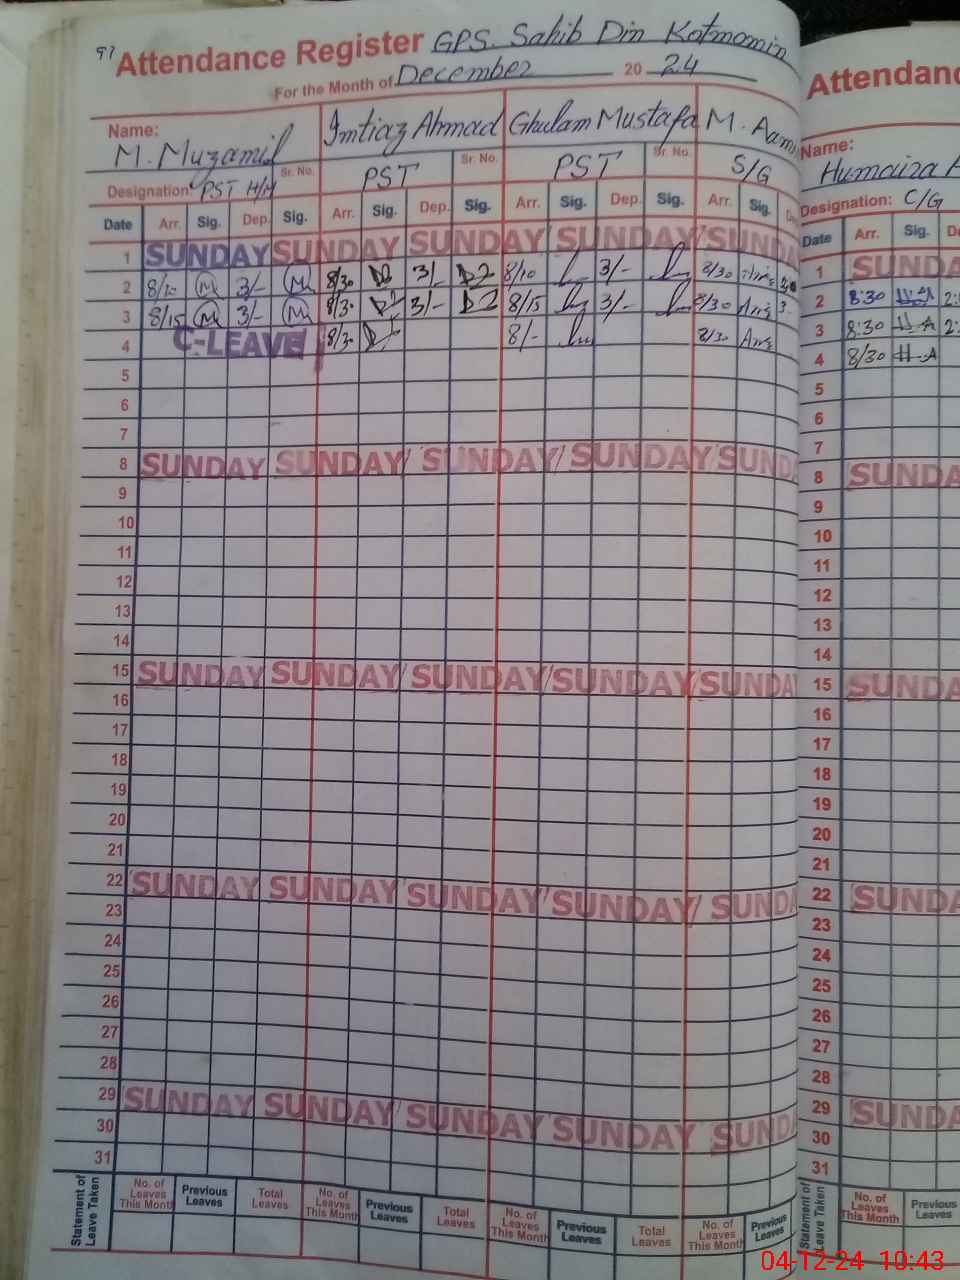 97 Attendance Register GPS. Sahib Din Kotmomin
For the Month of December 20 24
Name: M. Muzamil Imtiaz Ahmad Ghulam Mustafa M.
Designation: PST H/M Sr. No. PST Sr. No. PST Sr. No. S/G
Date Arr. Sig. Dep. Sig. Arr. Sig. Dep. Sig. Arr. Sig. Dep. Sig. Arr. Sig.
1 SUNDAY SUNDAY SUNDAY SUNDAY SUNDA
2 3/- 8/30 3/- 8/10 3/- 8/30
3 8/15 3/- 8/30 3/- 8/15 3/- 8/30
4 C-LEAVE 8/30 8/- 8/30
5
6
7
8 SUNDAY SUNDAY SUNDAY SUNDAY SUND
9
10
11
12
13
14
15 SUNDAY SUNDAY SUNDAY SUNDAY SUNDA
16
17
18
19
20
21
22 SUNDAY SUNDAY SUNDAY SUNDAY SUNDA
23
24
25
26
27
28
29 SUNDAY SUNDAY SUNDAY SUNDAY SUND
30
31
Statement of Leave Taken No. of Leaves This Month Previous Leaves Total Leaves No. of Leaves This Month Previous Leaves Total Leaves No. of Leaves This Month Previous Leaves Total Leaves No. of Leaves This Month Previous Leaves
Attendanc
Name:
Humaiza
Designation: C/G
Date Arr. Sig.
1 SUNDA
2 8:30 H-A
3 8:30 H-A
4 8/30 H-A
5
6
7
8 SUNDA
9
10
11
12
13
14
15 SUNDA
16
17
18
19
20
21
22 SUNDA
23
24
25
26
27
28
29 SUNDA
30
31
Statement of Leave Taken No. of Leaves This Month Previous Leaves
04-12-24 10:43